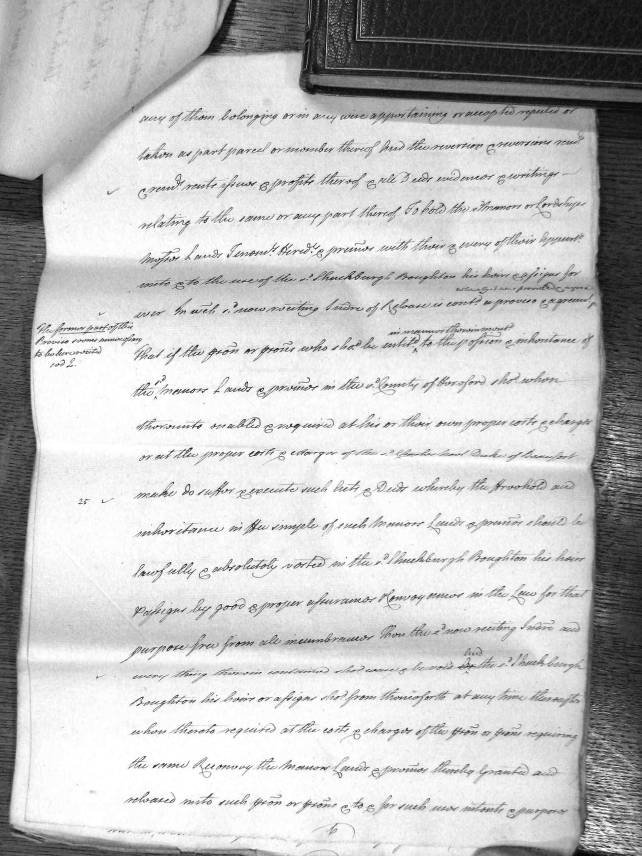 any of them belonging or in any wise appertaining or accepted reputed or
taken as part parcel or member thereof And the reversion & reversions rem.
& rem.rs rents issues & profits thereof & all Deeds evidences & writings
relating to the same or any part thereof To hold the s.d Manors or Lordships
Mess.es Lands Tenem.ts Hered.s & prem̃es with their & every of their Appurt.
unto & to the use of the s.d Shuckburgh Boughton his heirs & assigns for
ever In w.ch s.d now reciting Ind̃re of Release is cont.d a proviso & agreem.t
The former part of this
Proviso seems unnecessary
to be here recited
in manner thereinment.d
That if the p̃son or p̃sons who sho.d be intitl.d to the possion & inheritance of
the s.d Manors Lands & prem̃es in the s.d County of Hereford sho.d when
thereunto enabled & required at his or their own proper costs & charges
or at the proper costs & charges of the s.d Charles Noel Duke of Beaufort
25
make do suffer & execute such Acts & Deeds whereby the Freehold and
inheritance in Fee simple of such Manors Lands & prem̃es should be
lawfully & absolutely vested in the s.d Shuckburgh Boughton his heirs
& assigns by good & proper assurances & Conveyances in the Law for that
purpose free from all incumbrances Then the s.d now reciting Ind̃re and
every thing therein contained sho.d cease & be void And the s.d Shuckburgh
Boughton his heirs or assigns sho.d from thenceforth at any time thereafter
when thereto required at the costs & charges of the p̃son or p̃sons requiring
the same Reconvey the Manors Lands & prem̃es thereby Granted and
released unto such p̃son or p̃sons & to & for such uses intents & purposes